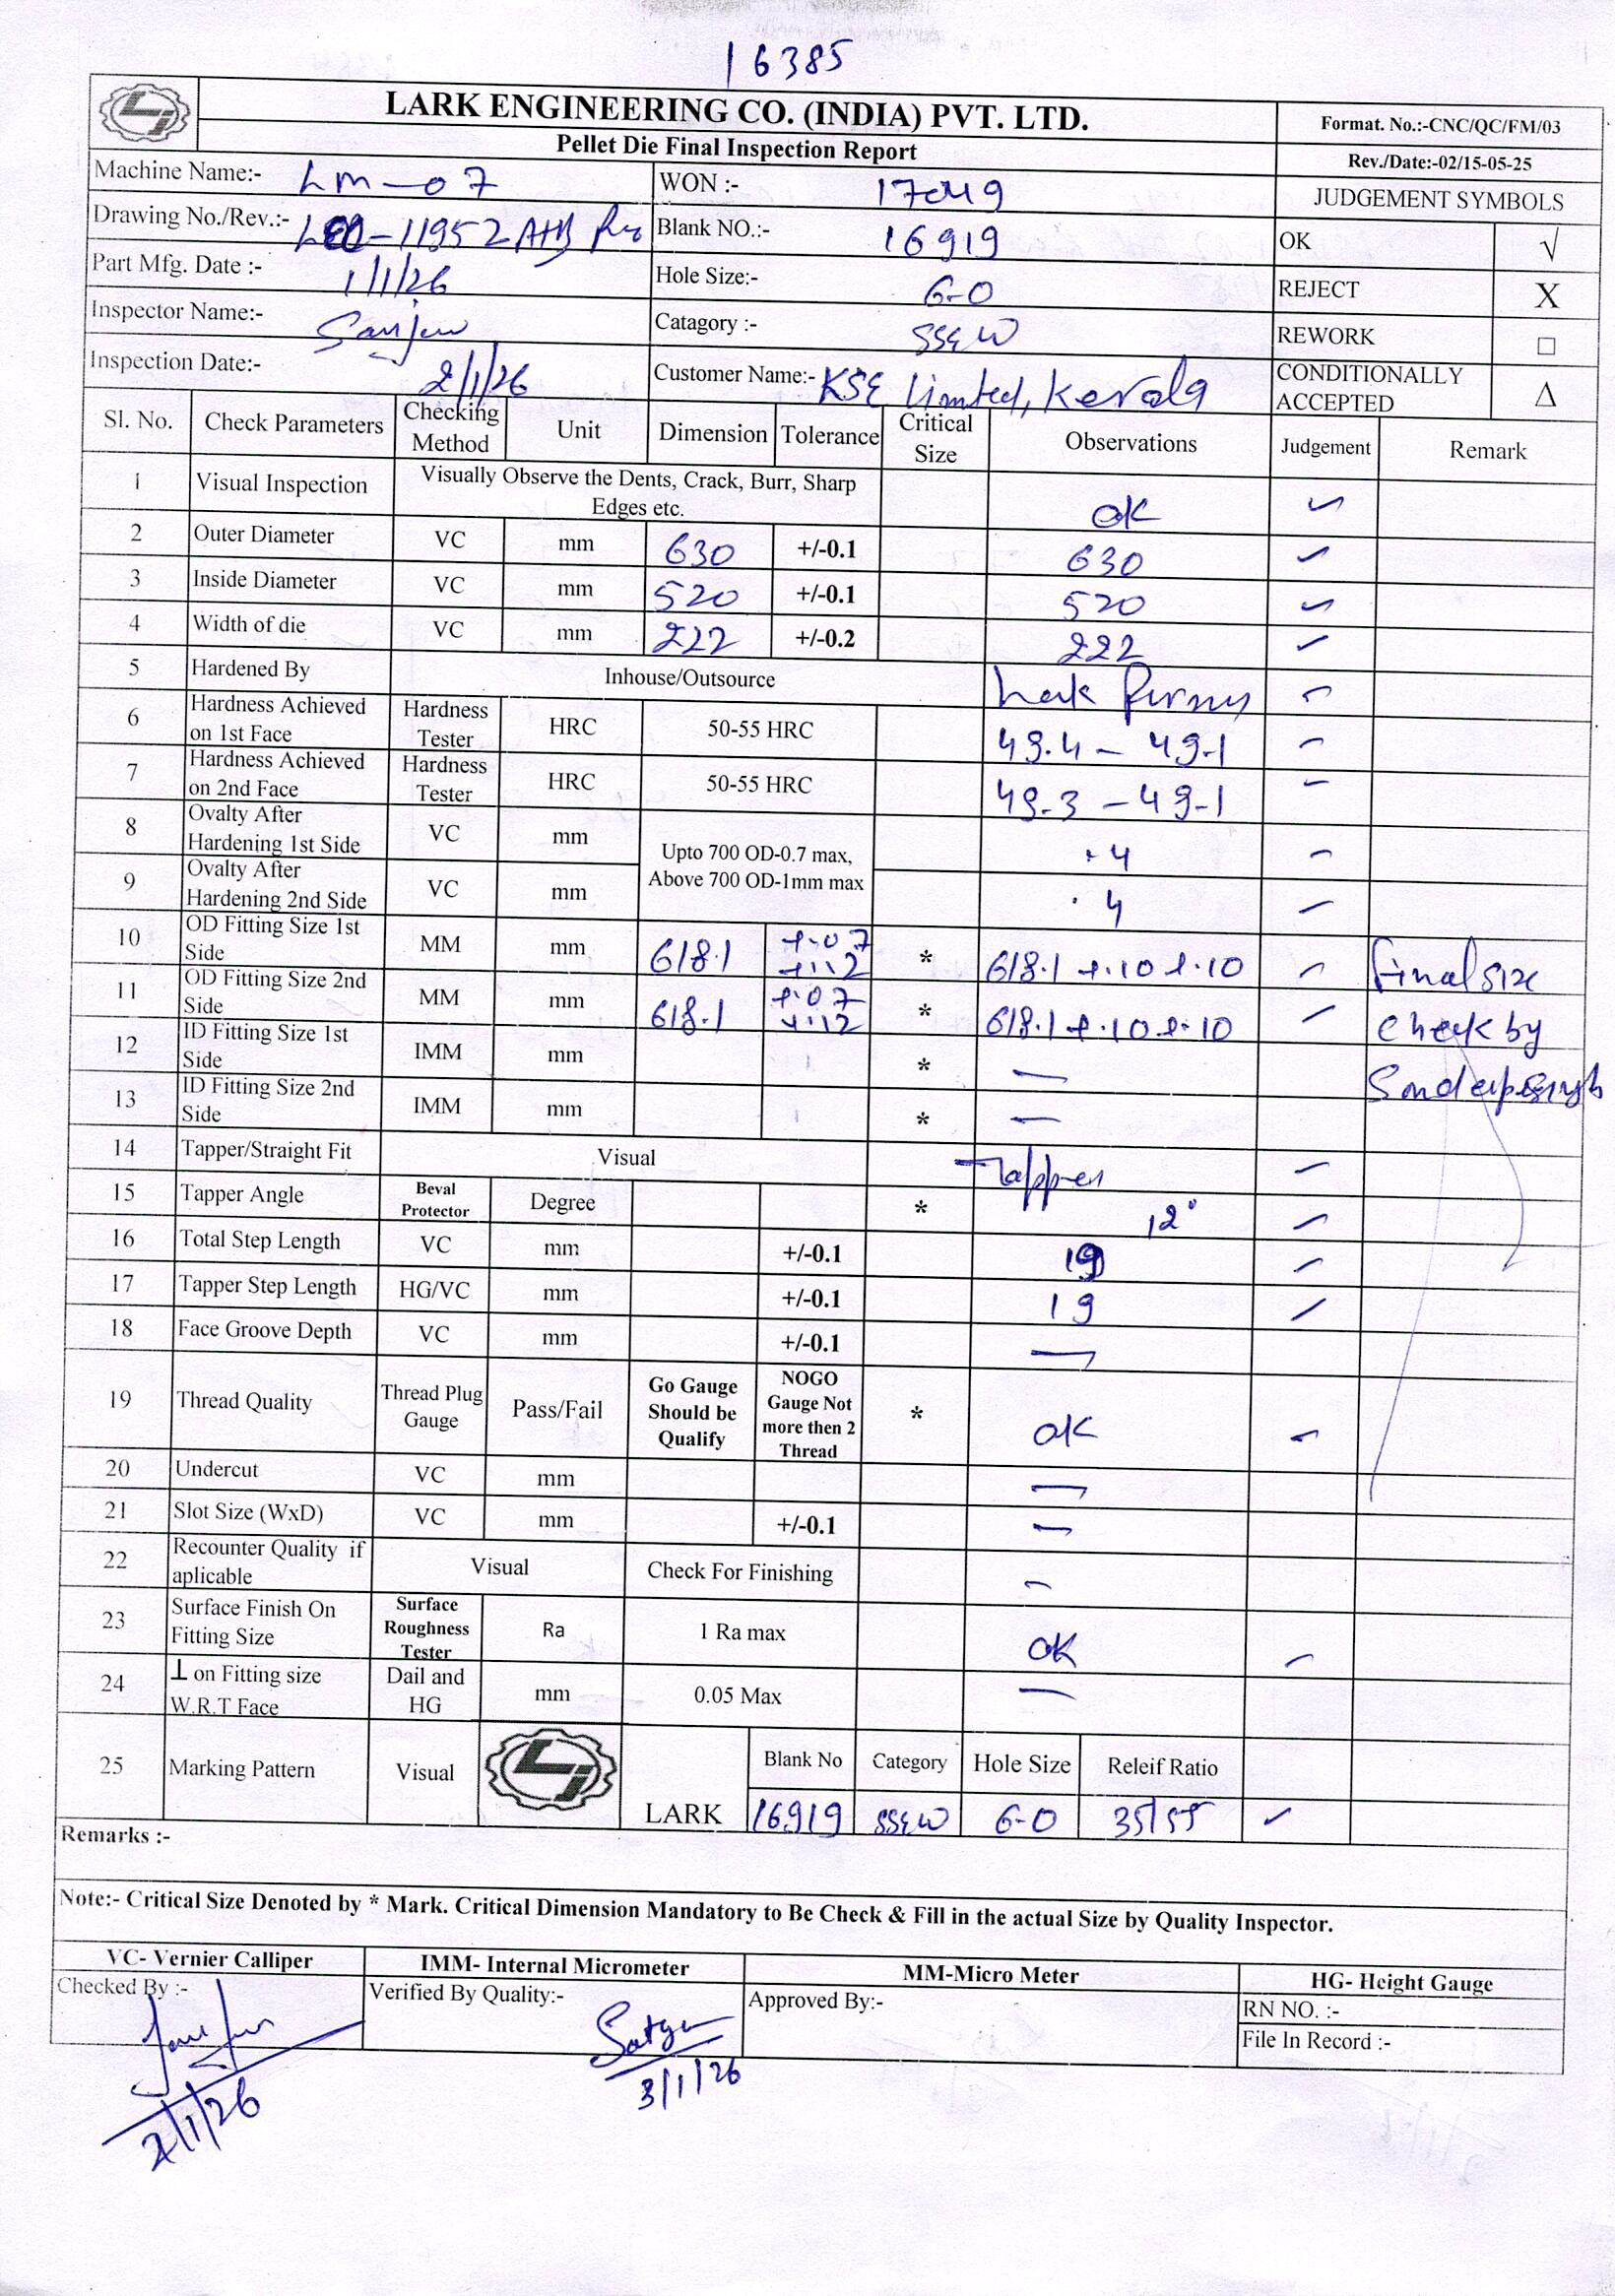 16385
LARK ENGINEERING CO. (INDIA) PVT. LTD.
Format. No.:-CNC/QC/FM/03
Pellet Die Final Inspection Report
Rev./Date:-02/15-05-25
Machine Name:- LM-07
WON :- 17049
JUDGEMENT SYMBOLS
Drawing No./Rev.:- -11952
Blank NO.:- 16919
OK √
Part Mfg. Date :- 1/1/26
Hole Size:- 6-0
REJECT X
Inspector Name:- Sanjeev
Catagory :- SS&W
REWORK □
Inspection Date:- 2/1/26
Customer Name:- KSE Limited, Kerala
CONDITIONALLY ACCEPTED Δ
Sl. No. Check Parameters Checking Method Unit Dimension Tolerance Critical Size Observations Judgement Remark
1 Visual Inspection Visually Observe the Dents, Crack, Burr, Sharp Edges etc. OK ✓
2 Outer Diameter VC mm 630 +/-0.1 630 ✓
3 Inside Diameter VC mm 520 +/-0.1 520 ✓
4 Width of die VC mm 222 +/-0.2 222 ✓
5 Hardened By Inhouse/Outsource ✓
6 Hardness Achieved on 1st Face Hardness Tester HRC 50-55 HRC 49.4 - 49.1 ✓
7 Hardness Achieved on 2nd Face Hardness Tester HRC 50-55 HRC 49.3 - 49.1 ✓
8 Ovalty After Hardening 1st Side VC mm Upto 700 OD-0.7 max, Above 700 OD-1mm max .4 ✓
9 Ovalty After Hardening 2nd Side VC mm .4 ✓
10 OD Fitting Size 1st Side MM mm 618.1 +.07 +.12 * 618.1 +.10 +.10 ✓ Final size
11 OD Fitting Size 2nd Side MM mm 618.1 +.07 +.12 * 618.1 +.10 +.10 ✓ Check by
12 ID Fitting Size 1st Side IMM mm * —
13 ID Fitting Size 2nd Side IMM mm * —
14 Tapper/Straight Fit Visual Tapper ✓
15 Tapper Angle Beval Protector Degree * 12° ✓
16 Total Step Length VC mm +/-0.1 19 ✓
17 Tapper Step Length HG/VC mm +/-0.1 19 ✓
18 Face Groove Depth VC mm +/-0.1 —
19 Thread Quality Thread Plug Gauge Pass/Fail Go Gauge Should be Qualify NOGO Gauge Not more then 2 Thread * OK ✓
20 Undercut VC mm —
21 Slot Size (WxD) VC mm +/-0.1 —
22 Recounter Quality if aplicable Visual Check For Finishing —
23 Surface Finish On Fitting Size Surface Roughness Tester Ra 1 Ra max OK ✓
24 ⊥ on Fitting size W.R.T Face Dail and HG mm 0.05 Max —
25 Marking Pattern Visual LARK Blank No Category Hole Size Releif Ratio
16919 SS&W 6-0 35/55 ✓
Remarks :-
Note:- Critical Size Denoted by * Mark. Critical Dimension Mandatory to Be Check & Fill in the actual Size by Quality Inspector.
VC- Vernier Calliper IMM- Internal Micrometer MM-Micro Meter HG- Height Gauge
Checked By :- Verified By Quality:- Approved By:- RN NO. :-
File In Record :-
2/1/26
3/1/26